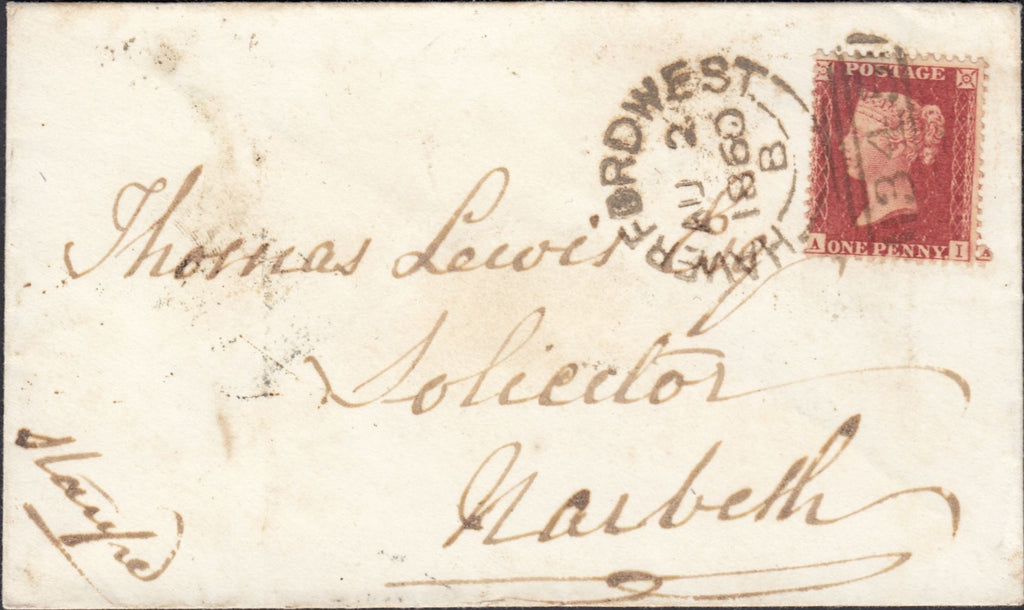 POSTAGE
HAVERFORDWEST
AU 2
1860
B
34
A ONE PENNY I
Thomas Lewis Esq
Solicitor
Narbeth